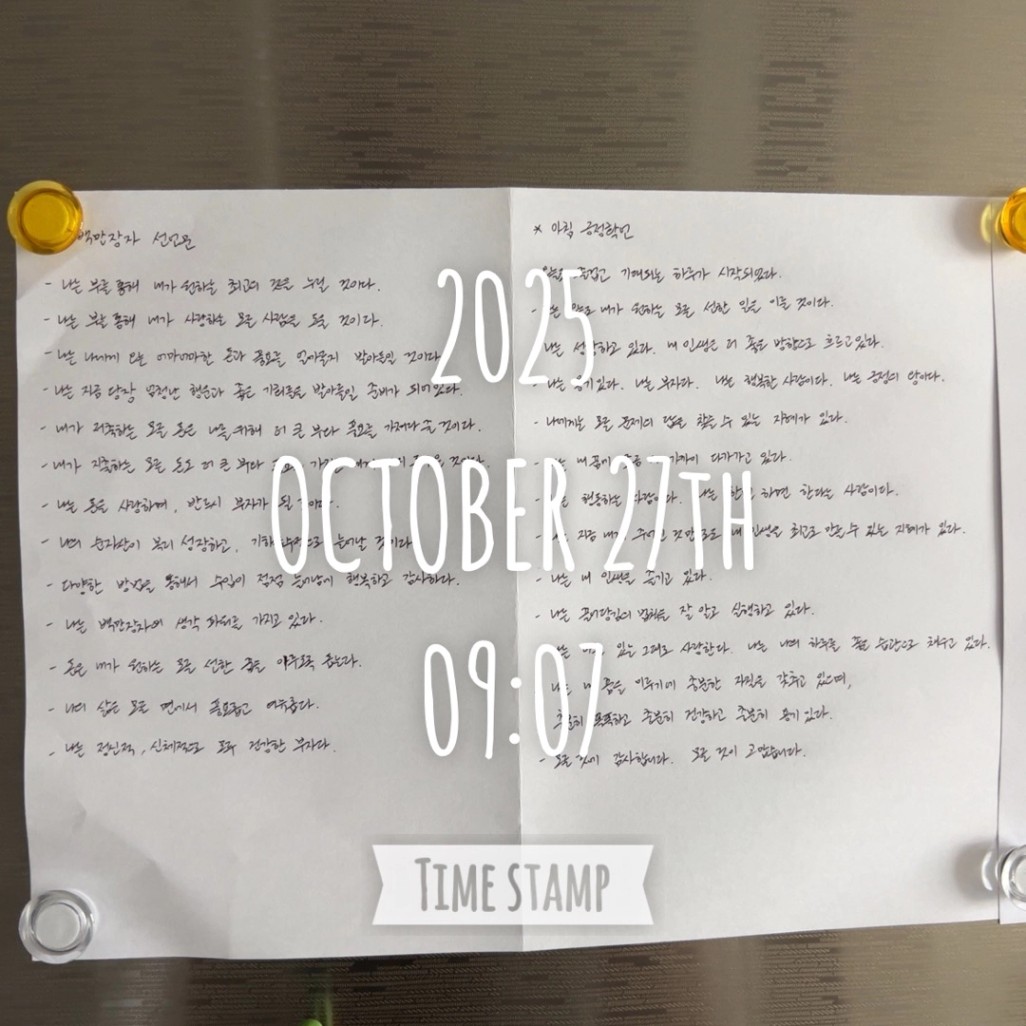 백만장자 선언문
- 나는 부를 통해 내가 원하는 최고의 것을 누릴 것이다.
- 나는 부를 통해 내가 사랑하는 모든 사람을 도울 것이다.
- 나는 나에게 오는 어마어마한 돈과 풍요를 받아들일 것이다
- 나는 지금 당장 엄청난 행운과 좋은 기회들을 받아들일 준비가 되어있다.
- 내가 저축하는 모든 돈은 나를 위해 더 큰 부와 풍요를 가져다 줄 것이다.
- 내가 지출하는 모든 돈도 더 큰 부와
- 나는 돈을 사랑하며, 반드시 부자가 될
- 나의 순자산이 불리 성장하고, 기하급수적으로 늘어날 것이다
- 다양한 방법을 통해서 수입이 점점 늘어남에 행복하고 감사하다.
- 나는 백만장자의 생각 파워를 가지고 있다.
- 돈은 내가 원하는 모든 선한 꿈을 이루도록 돕는다.
- 나의 삶은 모든 면에서 풍요롭고 여유롭다.
- 나는 정신적, 신체적으로 모두 건강한 부자다.
* 아침 긍정확언
기대되는 하루가 시작되었다.
내가 원하는 모든 선한 일을 이룰 것이다.
나는 성장하고 있다. 내 인생은 더 좋은 방향으로 흐르고 있다.
- 나는 용기있다. 나는 부자다. 나는 행복한 사람이다. 나는 긍정의 왕이다.
- 나에게는 모든 문제의 답을 찾을 수 있는 지혜가 있다.
내 꿈에 가까이 다가가고 있다.
행동하는 사람이다. 나는 한다고 하면 한다는 사람이다.
지금 내게 주어진 것만으로도 내 인생을 최고로 만들 수 있는 지혜가 있다.
- 나는 내 인생을 즐기고 있다.
- 나는 끌어당김의 법칙을 잘 알고 실행하고 있다.
있는 그대로 사랑한다. 나는 나의 하루를 좋은 습관으로 채우고 있다.
나는 내 꿈을 이루기에 충분한 자질을 갖추고 있으며,
충분히 똑똑하고 충분히 건강하고 충분히 용기 있다.
- 모든 것에 감사합니다. 모든 것이 고맙습니다.
2025
OCTOBER 27TH
09:07
TIME STAMP